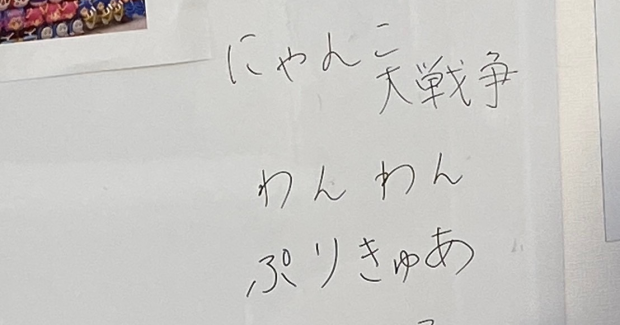 にゃんこ
大戦争
わんわん
ぷりきゅあ